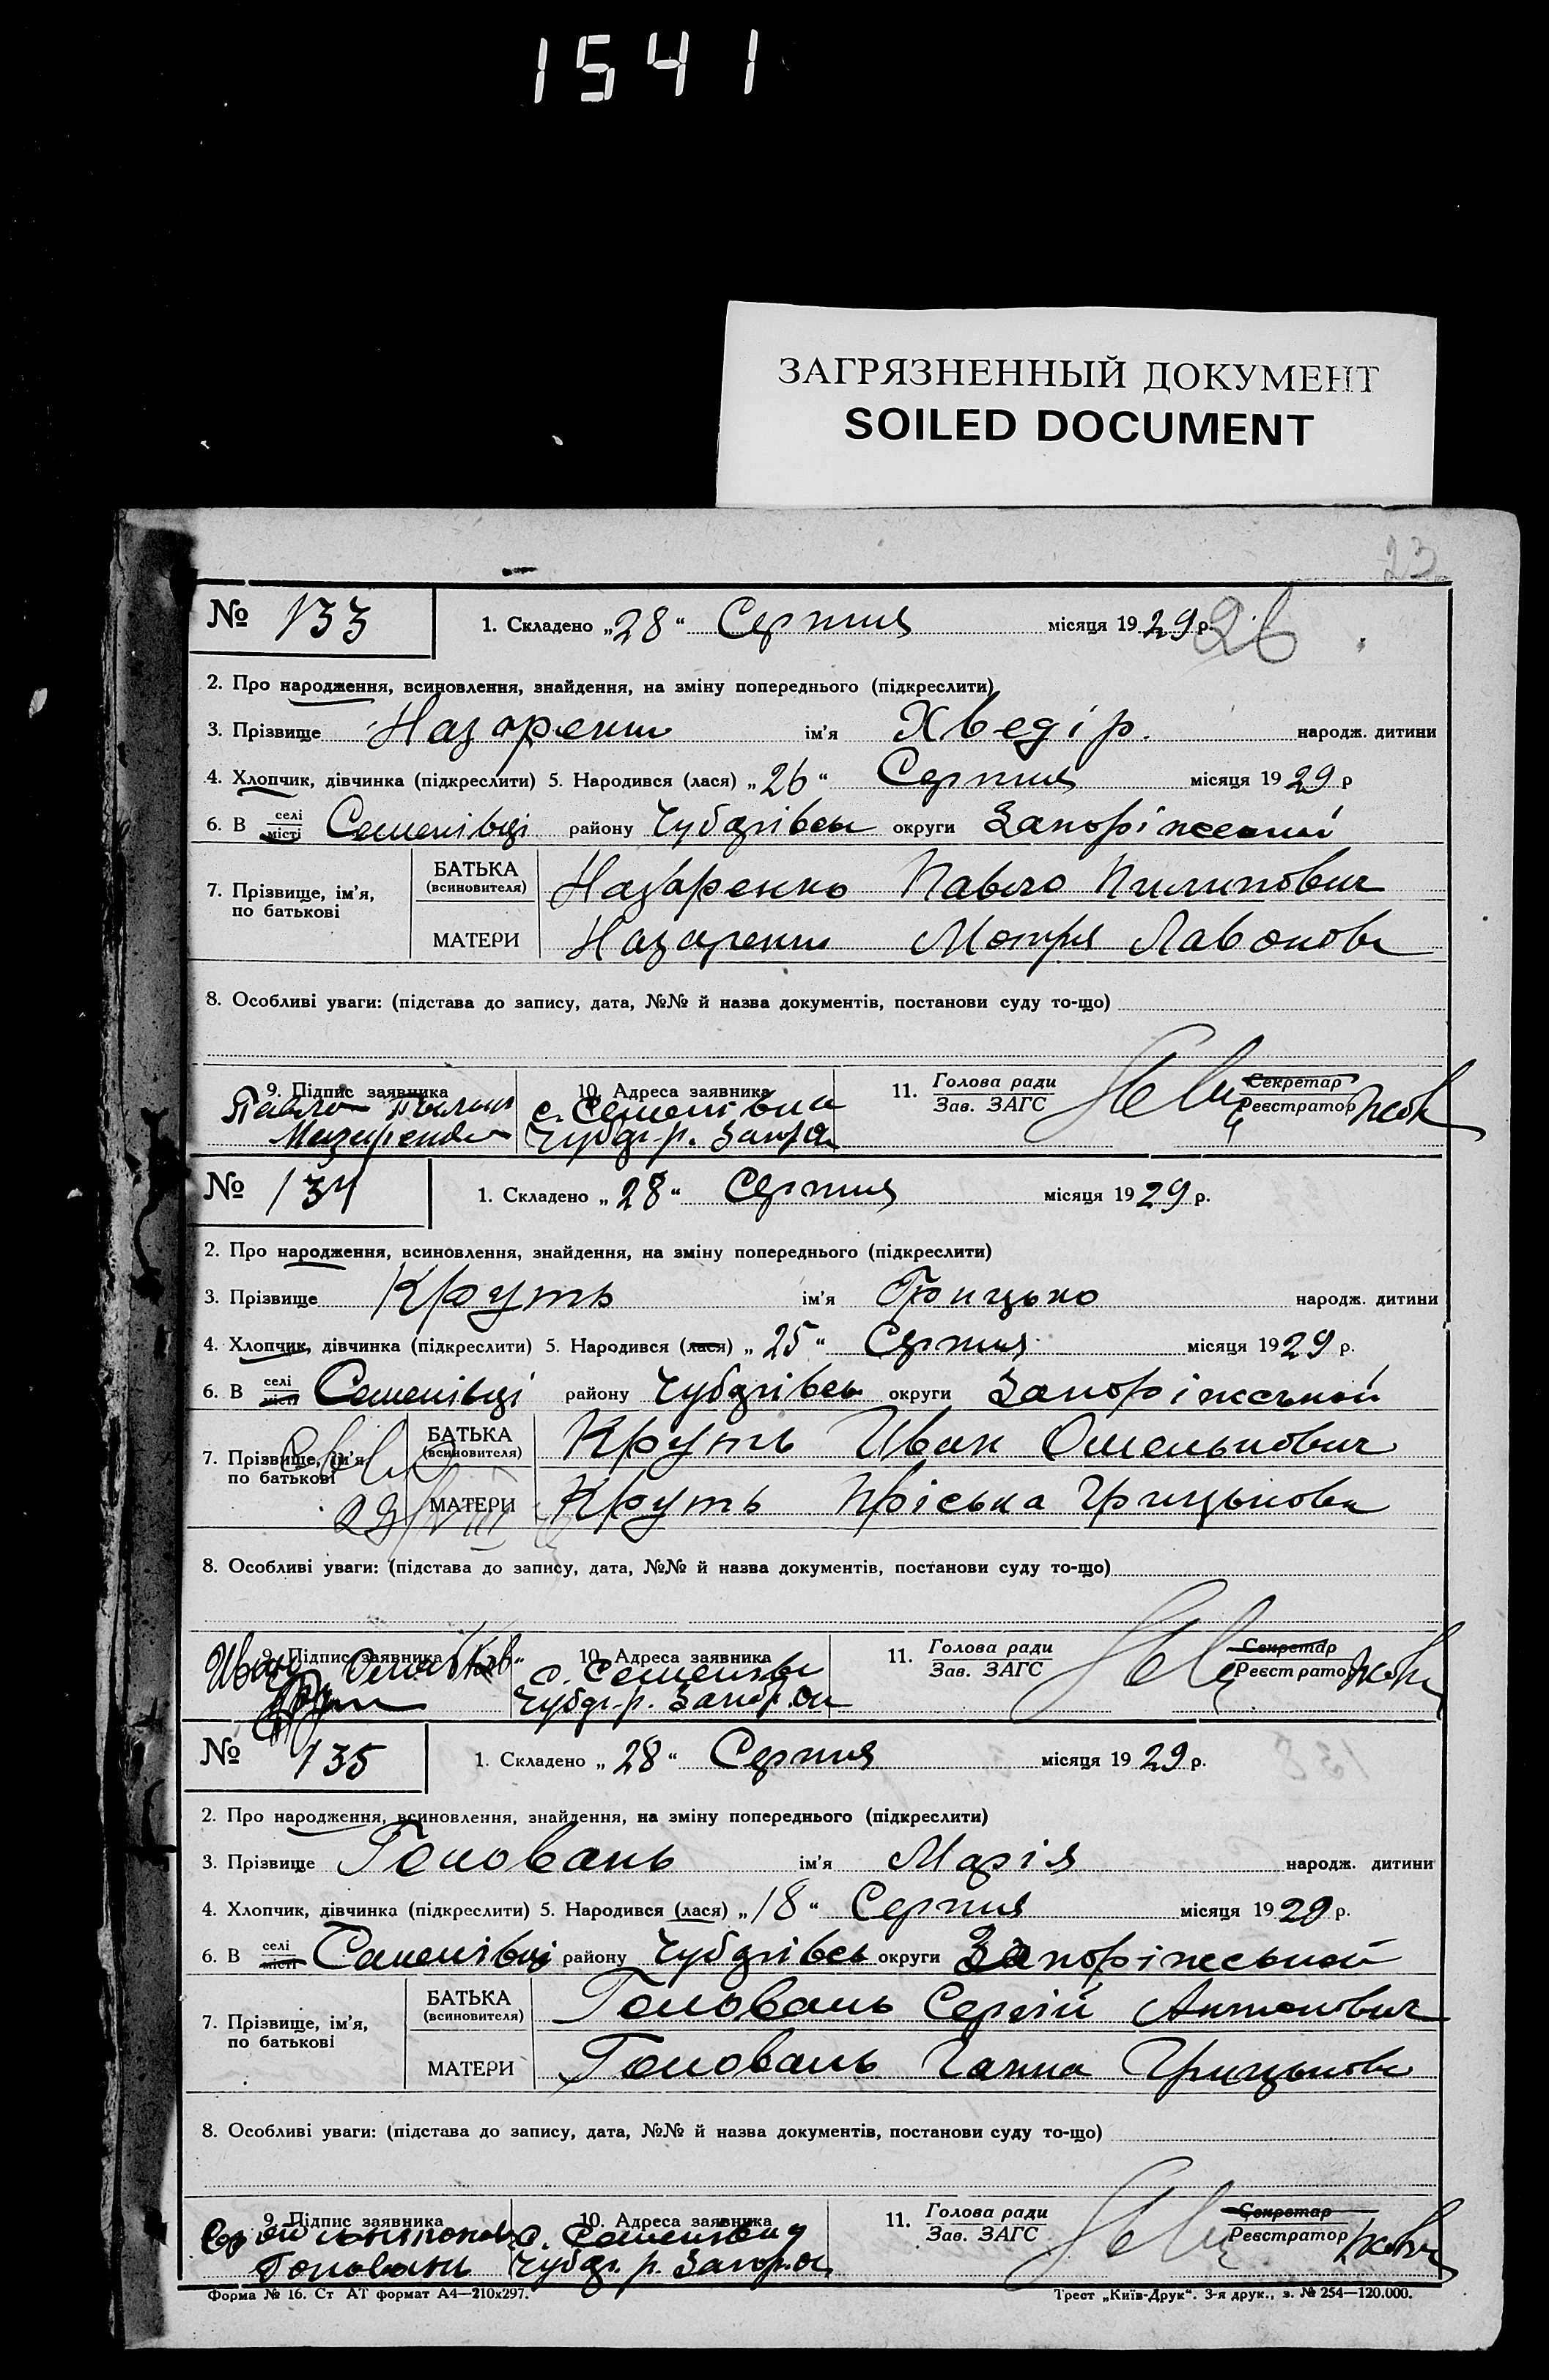 1541
ЗАГРЯЗНЕННЫЙ ДОКУМЕНТ
SOILED DOCUMENT
23
26
№ 133 1. Складено „28“ Серпня місяця 1929 р.
2. Про народження, всиновлення, знайдення, на зміну попереднього (підкреслити)
3. Прізвище Назаренко ім'я Хведір. народж. дитини
4. Хлопчик, дівчинка (підкреслити) 5. Народився (лася) „26“ Серпня місяця 1929 р
6. В селі місті Семенівці району Чубарівськ округи Запоріжської
7. Прізвище, ім'я, по батькові БАТЬКА (всиновителя) Назаренко Павло Пилипович
МАТЕРИ Назаренко Мотря Лавоновн
8. Особливі уваги: (підстава до запису, дата, №№ й назва документів, постанови суду то-що)
9. Підпис заявника 10. Адреса заявника 11. Голова ради Зав. ЗАГС Секретар Реєстратор
Павло с. Семенівка
Чубар. р. Запор. ок
№ 134 1. Складено „28“ Серпня місяця 1929 р.
2. Про народження, всиновлення, знайдення, на зміну попереднього (підкреслити)
3. Прізвище Круть ім'я Грицько народж. дитини
4. Хлопчик, дівчинка (підкреслити) 5. Народився (лася) „25“ Серпня місяця 1929 р.
6. В селі місті Семенівці району Чубарівськ округи Запоріжської
7. Прізвище, ім'я, по батькові БАТЬКА (всиновителя) Круть Иван Омелькович
МАТЕРИ Круть Пріська Грицьковн
8. Особливі уваги: (підстава до запису, дата, №№ й назва документів, постанови суду то-що)
9. Підпис заявника 10. Адреса заявника 11. Голова ради Зав. ЗАГС Секретар Реєстратор
Иван с. Семенівк
Чубар. р. Запор. ок
№ 135 1. Складено „28“ Серпня місяця 1929 р.
2. Про народження, всиновлення, знайдення, на зміну попереднього (підкреслити)
3. Прізвище Головань ім'я Марія народж. дитини
4. Хлопчик, дівчинка (підкреслити) 5. Народився (лася) „18“ Серпня місяця 1929 р.
6. В селі місті Семенівці району Чубарівськ округи Запоріжської
7. Прізвище, ім'я, по батькові БАТЬКА (всиновителя) Головань Сергій Антонович
МАТЕРИ Головань Ганна Грицьковн
8. Особливі уваги: (підстава до запису, дата, №№ й назва документів, постанови суду то-що)
9. Підпис заявника 10. Адреса заявника 11. Голова ради Зав. ЗАГС Секретар Реєстратор
с. Семенівка
Головань Чубар. р. Запор. ок
Форма № 16. Ст АТ формат А4—210х297. Трест „Київ-Друк“. 3-я друк., з. № 254—120.000.